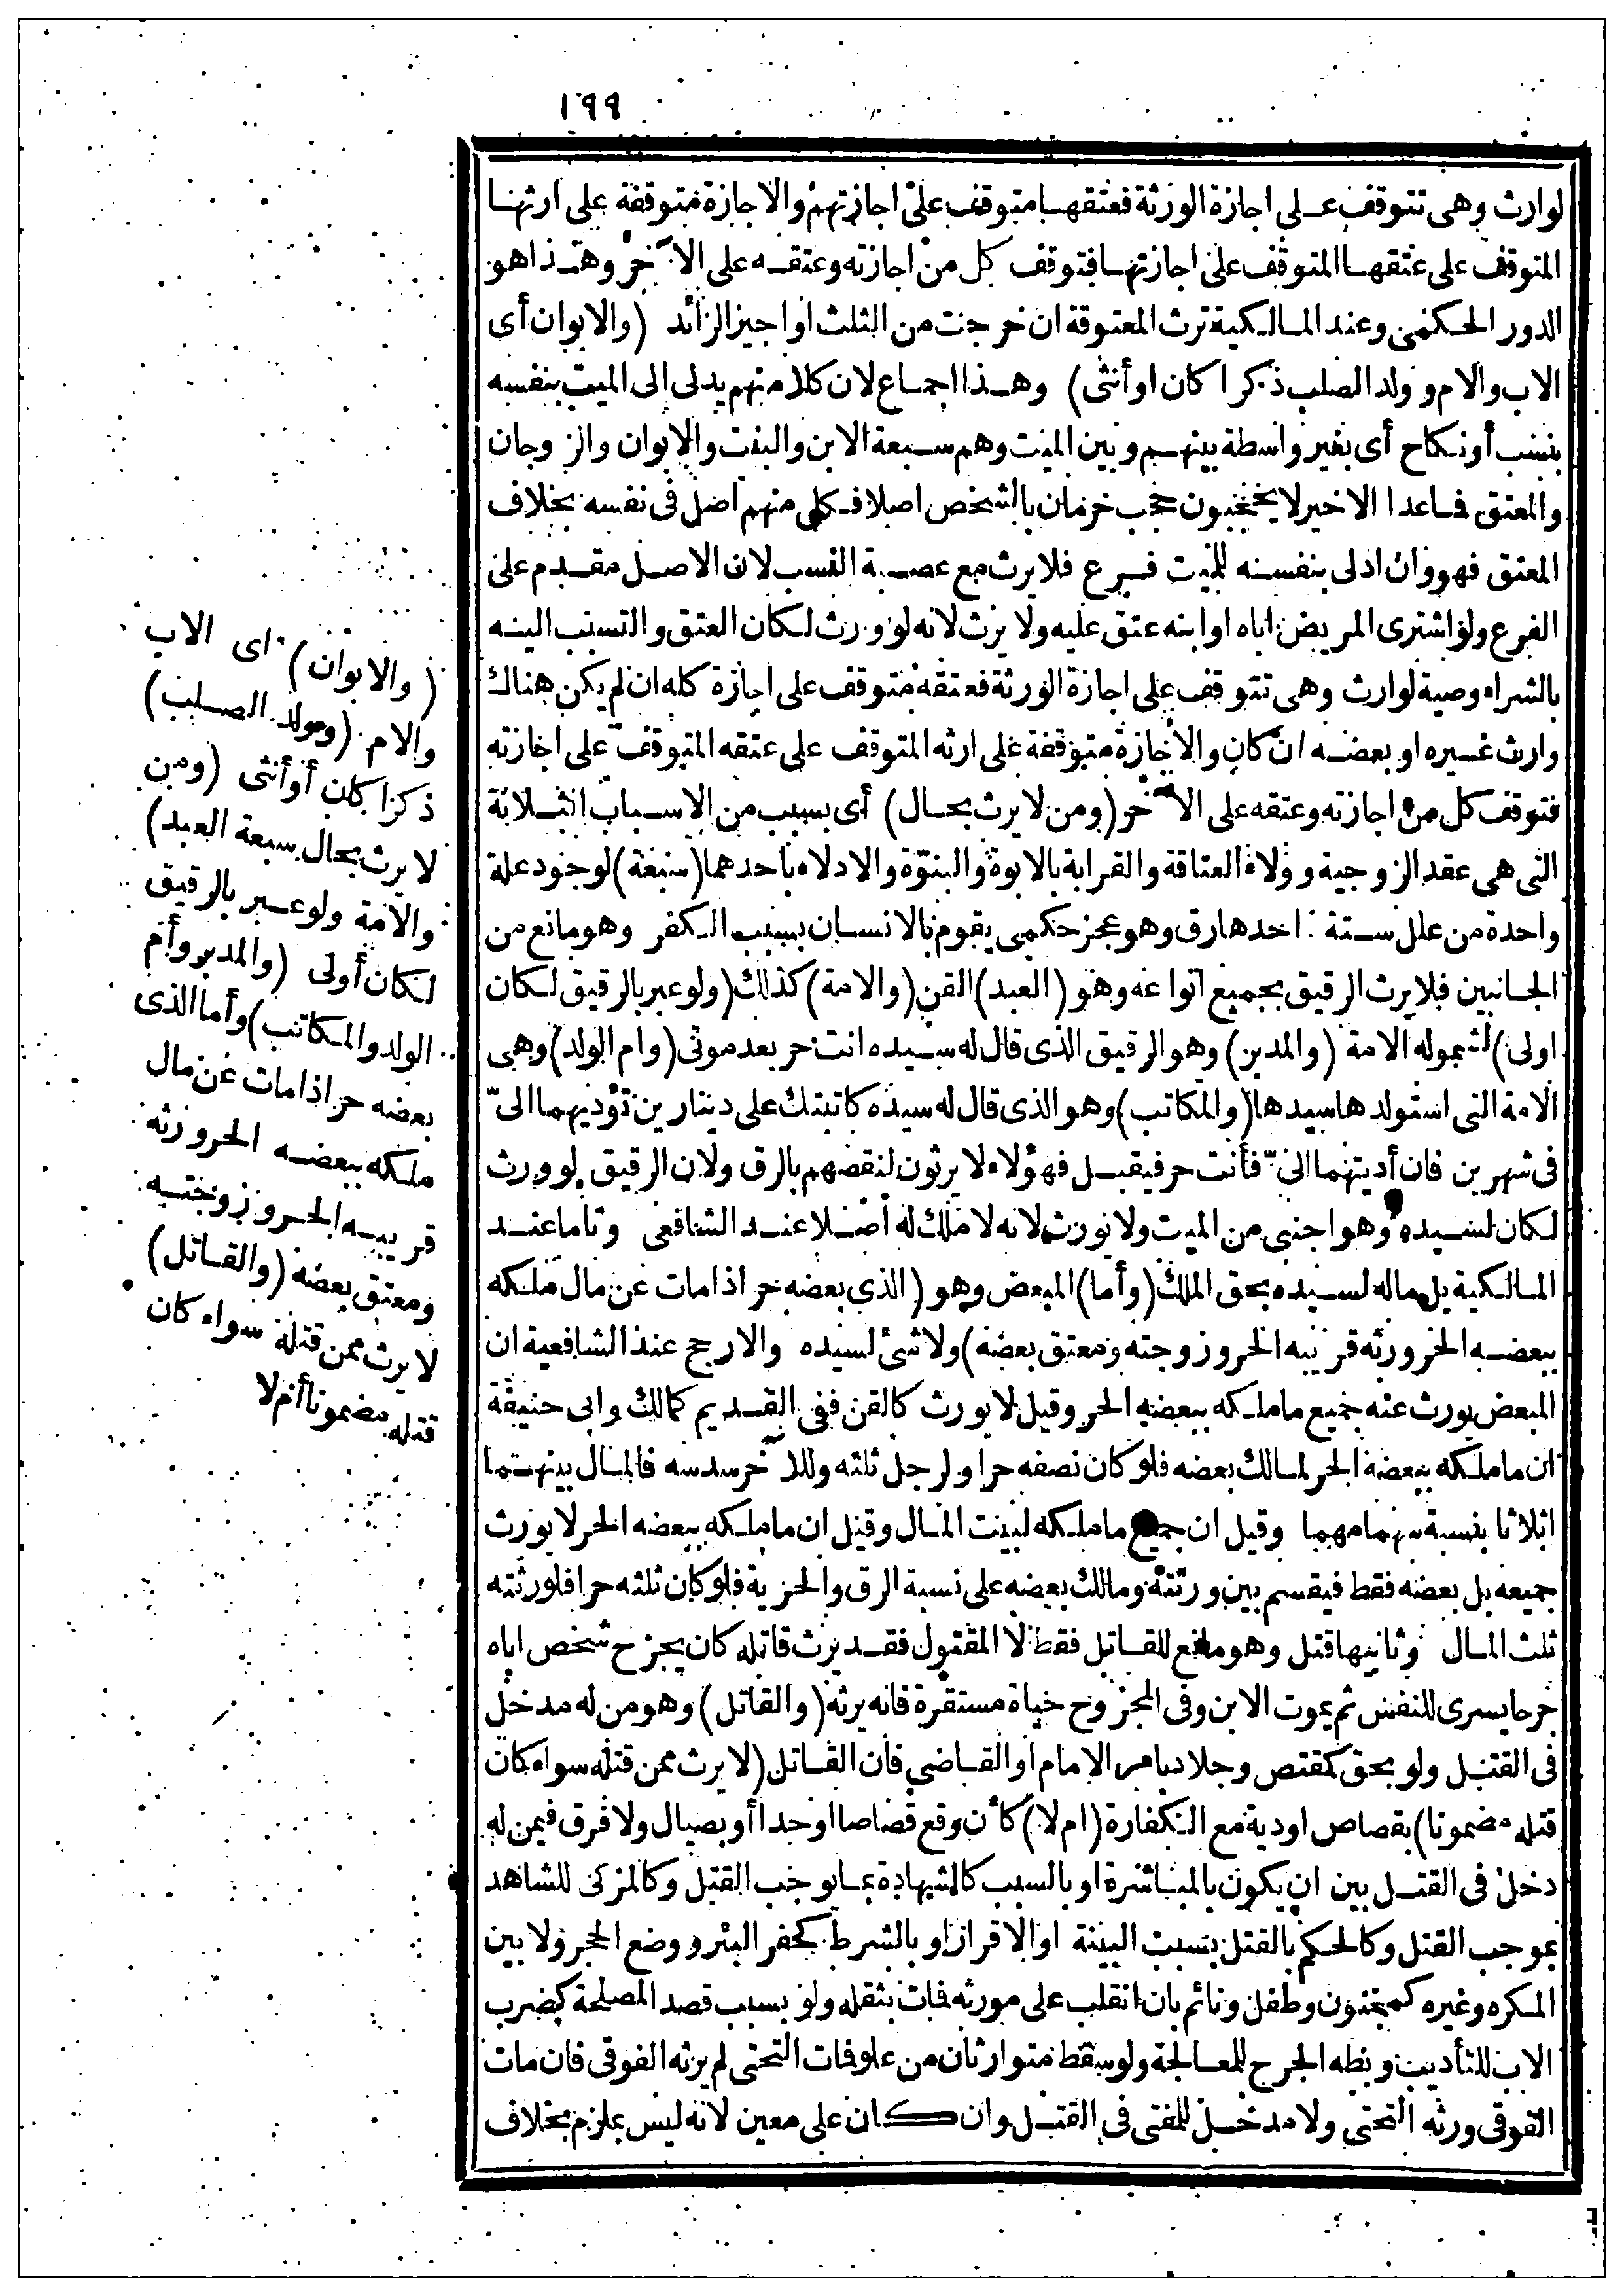 ١٩٩
لوارث وهى تتوقف على اجازة الورثة فعتقها متوقف على اجازتهم والاجازة متوقفة على ارثها
المتوقف على عتقها المتوقف على اجازتها فتوقف كل من اجازته وعتقه على الآخر وهذا هو
الدور الحكمى وعند المالكية ترث المعتوقة ان خرجت من الثلث او اجيز الزائد (والابوان أى
الاب والام وولد الصلب ذكرا كان او أنثى) وهذا اجماع لان كلا منهم يدلى الى الميت بنفسه
بنسب أو نكاح أى بغير واسطة بينهم وبين الميت وهم سبعة الابن والبنت والابوان والزوجان
والمعتق فاعدا الاخير لا يحجبون حجب حرمان بالشخص اصلا فكل منهم اصل فى نفسه بخلاف
المعتق فهو وان ادلى بنفسه للميت فرع فلا يرث مع عصبة النسب لان الاصل مقدم على
الفرع ولو اشترى المريض اباه او ابنه عتق عليه ولا يرث لانه لو ورث لكان العتق والتسبب اليه
بالشراء وصية لوارث وهى تتوقف على اجازة الورثة فعتقه متوقف على اجازة كله ان لم يكن هناك
وارث غيره او بعضه ان كان والاجازة متوقفة على ارثه المتوقف على عتقه المتوقف على اجازته
فتوقف كل من اجازته وعتقه على الآخر (ومن لا يرث بحال) أى بسبب من الاسباب الثلاثة
التى هى عقد الزوجية وولاء العتاقة والقرابة بالابوة والبنوّة والادلاء بأحدهما (سبعة) لوجود علة
واحدة من علل ستة : احدها رق وهو عجز حكمى يقوم بالانسان بسبب الكفر وهو مانع من
الجانبين فلا يرث الرقيق بجميع انواعه وهو (العبد) القن (والامة) كذلك (ولو عبر بالرقيق لكان
اولى) لشموله الامة (والمدبر) وهو الرقيق الذى قال له سيده انت حر بعد موتى (وام الولد) وهى
الامة التى استولدها سيدها (والمكاتب) وهو الذى قال له سيده كاتبتك على دينارين تؤديهما الىّ
فى شهرين فان أديتهما الىّ فأنت حر فيقبل فهؤلاء لا يرثون لنقصهم بالرق ولان الرقيق لو ورث
لكان لسيده وهو اجنبى من الميت ولا نورث لانه لا ملك له أصلا عند الشافعى وتاما عند
المالكية بل ماله لسيده بحق الملك (وأما) المبعض وهو (الذى بعضه حر اذا مات عن مال ملكه
ببعضه الحر ورثه قريبه الحر وزوجته ومعتق بعضه) ولا شئ لسيده والارجح عند الشافعية ان
المبعض يورث عنه جميع ما ملكه ببعضه الحر وقيل لا يورث كالقن ففى القديم كمالك وابى حنيفة
ان ما ملكه ببعضه الحر لمالك بعضه فلو كان نصفه حرا ولرجل ثلثه وللآخر سدسه فالمال بينهما
اثلاثا بنسبة سهامهما وقيل ان جميع ما ملكه لبيت المال وقيل ان ما ملكه ببعضه الحر لا يورث
جميعه بل بعضه فقط فيقسم بين ورثته ومالك بعضه على نسبة الرق والحرية فلو كان ثلثه حرا فلورثته
ثلث المال وثانيها قتل وهو مانع للقاتل فقط لا المقتول فقد يرث قاتله كان يجرح شخص اباه
جرحا يسرى للنفس ثم يموت الابن وفى المجروح حياة مستقرة فانه يرثه (والقاتل) وهو من له مدخل
فى القتل ولو بحق كمقتص وجلاد بامر الامام او القاضى فان القاتل (لا يرث ممن قتله سواء كان
قتله مضمونا) بقصاص او دية مع الكفارة (ام لا) كأن وقع قصاصا او حدا أو بصيال ولا فرق فيمن له
دخل فى القتل بين ان يكون بالمباشرة او بالسبب كالشهادة بما يوجب القتل وكالمزكى للشاهد
بموجب القتل وكالحكم بالقتل بتسبب البينة او الاقرار او بالشرط كحفر البئر ووضع الحجر ولا بين
المكره وغيره كمجنون وطفل ونائم بان انقلب على مورثه فمات بثقله ولو بسبب قصد المصلحة كضرب
الاب للتأديب وبطه الجرح للمعالجة ولو سقط متوارثان من علو فمات التحتى لم يرثه الفوقى فان مات
الفوقى ورثه التحتى ولا مدخل للمفتى فى القتل وان كان على معين لانه ليس بملزم بخلاف
(والابوان) اى الاب
والام (وولد الصلب)
ذكرا كان أو أنثى (ومن
لا يرث بحال سبعة العبد)
والامة ولو عبر بالرقيق
لكان أولى (والمدبر وأم
الولد والمكاتب) وأما الذى
بعضه حر اذا مات عن مال
ملكه ببعضه الحر ورثه
قريبه الحر وزوجته
ومعتق بعضه (والقاتل)
لا يرث ممن قتله سواء كان
قتله مضمونا أم لا